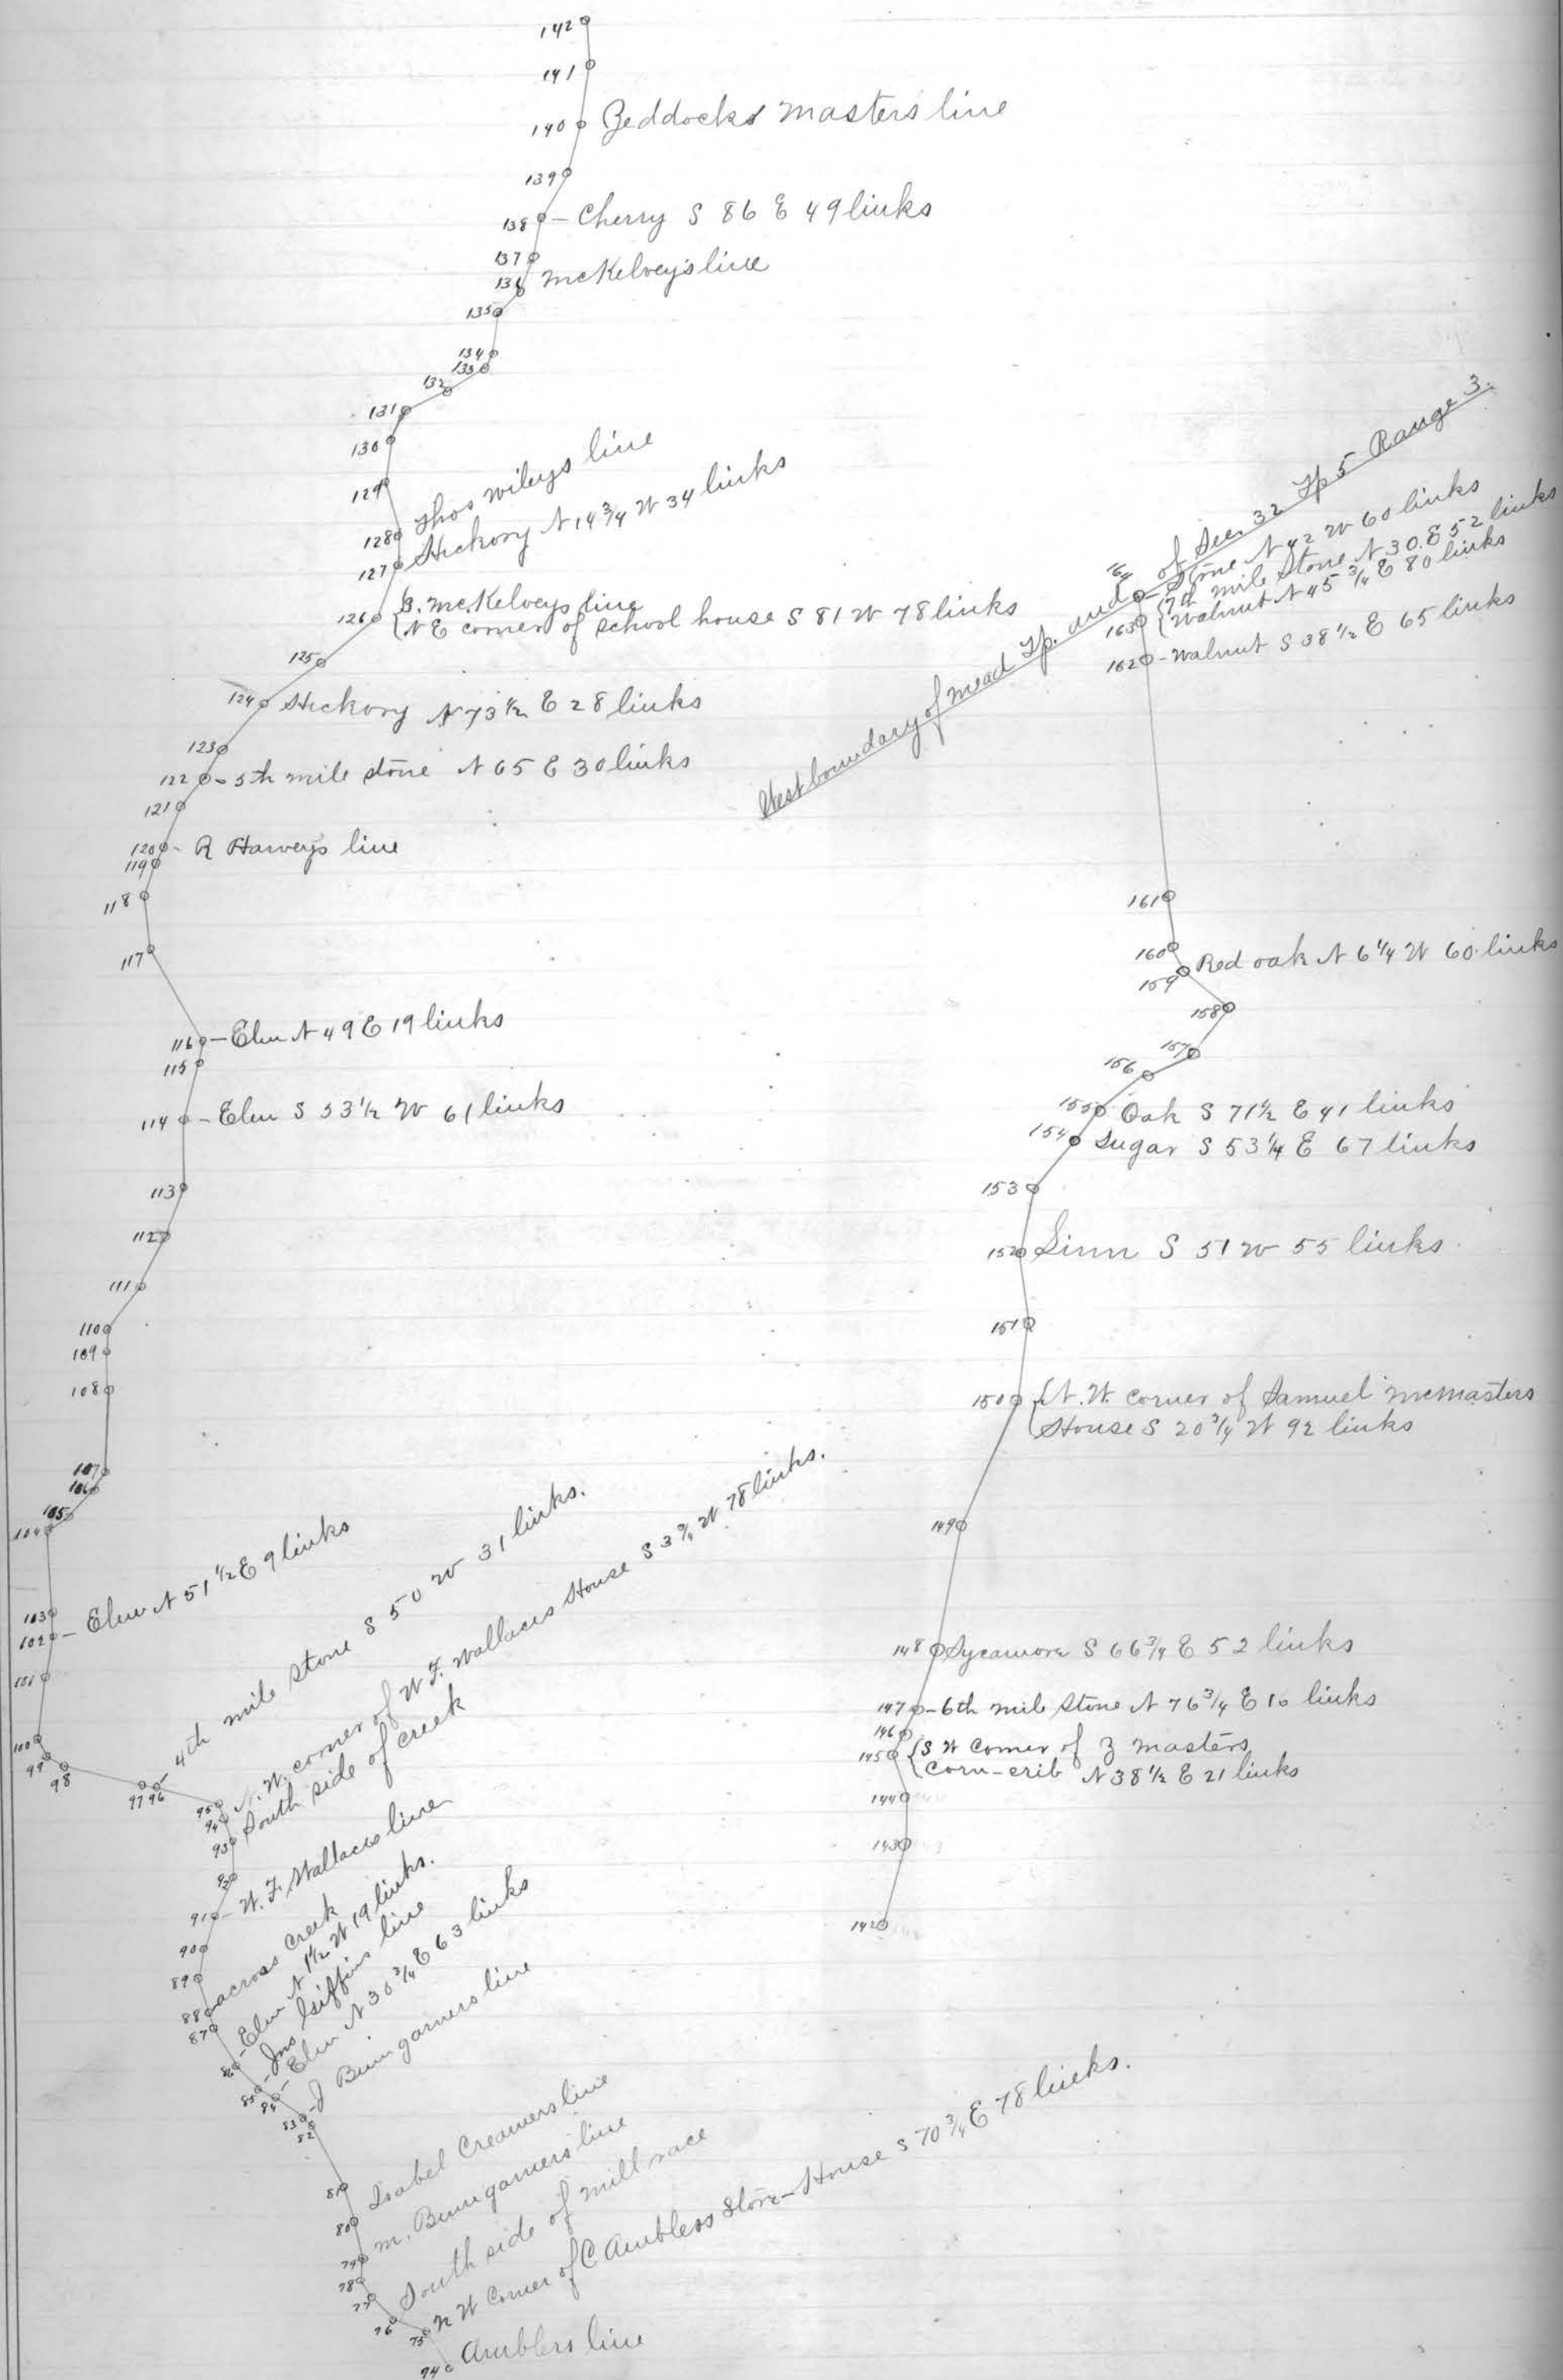 142
141
140 Zeddocks Masters line
139
138 - Cherry S 86 E 49 links
137
136 McKelvey's line
135
134
133
132
131
130
129
128 Thos Wileys line
127 Hickory N 14 3/4 W 34 links
126 { B. McKelveys line
N E corner of School house S 81 W 78 links
125
124 Hickory N 73 1/2 E 28 links
123
122 - 5th mile stone N 65 E 30 links
121
120 - R Harveys line
119
118
117
116 - Elm N 49 E 19 links
115
114 - Elm S 53 1/2 W 61 links
113
112
111
110
109
108
107
106
105
104
103
102 - Elm N 51 1/2 E 9 links
101
100
99
98
97
96 - 4th mile Stone S 50 W 31 links.
95
94 N. W. corner of W. F. Wallaces House S 3 3/4 W 78 links.
93 South side of creek
92
91 - W. F. Wallaces line
90
89
88 across creek
87
86 - Elm N 1 1/2 W 19 links.
85 - Jno Giffins line
84 - Elm N 30 3/4 E 63 links
83 - J Bumgarners line
82
81
80 Isabel Creamers line
79 M. Bumgarners line
78
77
76 South side of mill race
75 N W Corner of C Amblers Store-House S 70 3/4 E 78 links.
74 Amblers line
West boundary of Mead Tp. and of Sec. 32 Tp 5 Range 3.
164 - Stone N 42 W 60 links
163 { 7th mile Stone N 30 E 52 links
Walnut N 45 3/4 E 80 links
162 - Walnut S 38 1/2 E 65 links
161
160
159 Red oak N 6 1/4 W 60 links
158
157
156
155 Oak S 71 1/2 E 41 links
154 Sugar S 53 1/4 E 67 links
153
152 Linn S 51 W 55 links.
151
150 { N. W. corner of Samuel McMasters
House S 20 3/4 W 92 links
149
148 Sycamore S 66 3/4 E 52 links
147 - 6th mile Stone N 76 3/4 E 10 links
146
145 { S W Corner of Z Masters
Corn-crib N 38 1/2 E 21 links
144
143
142